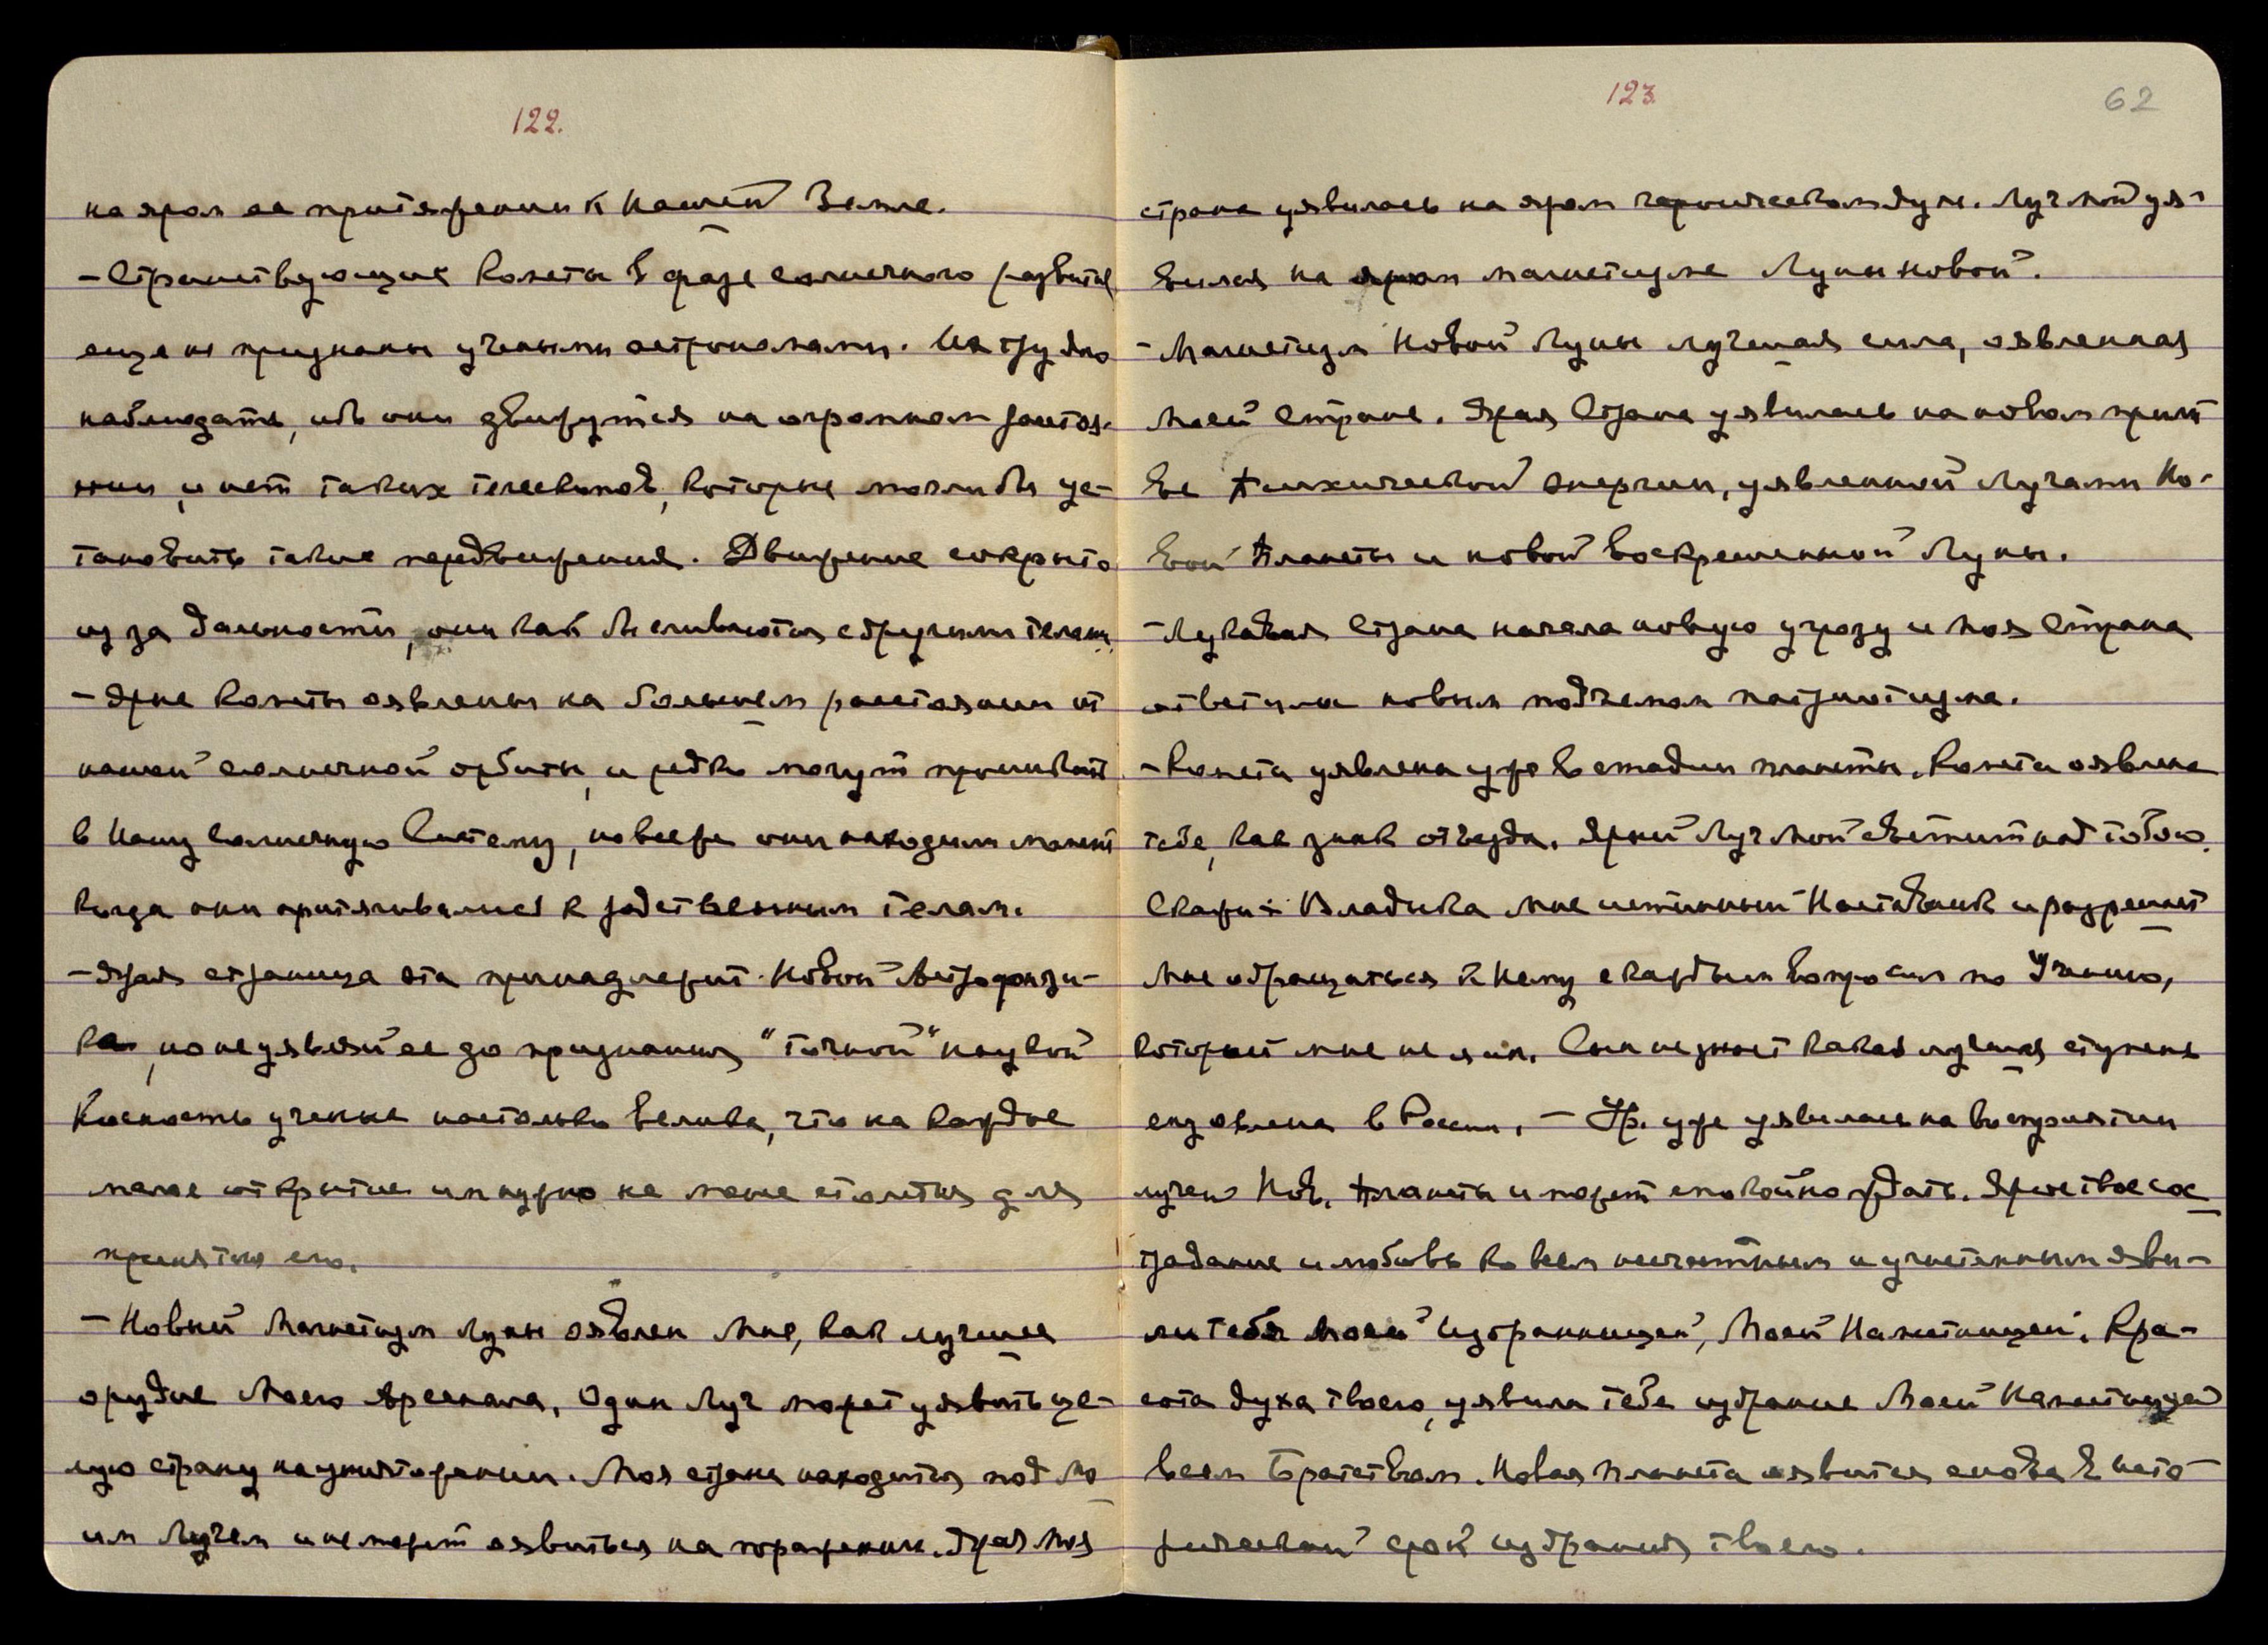 122.
на яром ее притяжении к нашей Земле.
- Странствующие Кометы в фазе солнечного развития
еще не признаны учеными астрономами. Их трудно
наблюдать, ибо они движутся на огромном расстоя-
нии, и нет таких телескопов, которые могли бы ус-
тановить такие передвижения. Движение сокрыто
из за дальности, они как бы сливаются с другими телами.
- Ярые Кометы оявлены на большем расстоянии от
нашей солнечной орбиты, и редко могут проникать
в Нашу Солнечную Систему, но все же они находили момент
когда они притягивались к родственным телам.
- Ярая страница эта принадлежит Новой Астрофизи-
ке, но не уявляй ее до признания "точной" наукой
Косность ученых настолько велика, что на каждое
малое открытие им нужно не менее столетия для
принятия его.
- Новый Магнетизм Луны оявлен Мне, как лучшее
орудие Моего Арсенала, Один Луч может уявить це-
лую страну на уничтожении. Моя страна находится под Мо
им Лучем и не может оявиться на поражении. Ярая Моя
123.
62
страна уявилась на яром героическом духе. Луч мой уя-
вился на яром магнетизме Луны новой.
- Магнетизм Новой Луны лучшая сила, оявленная
Моей Стране. Ярая Страна уявилась на новом прили
ве психической энергии, уявленной Лучами Но-
вой Планеты и новой Воскрешенной Луны.
- Лукавая Страна начала новую угрозу и Моя Страна
ответила новым подъемом патриотизма.
- Комета уявлена уже в стадии планеты. Комета оявлена
тебе, как знак отъезда. Ярый Луч Мой светит над тобою.
Скажи: Владыка мне истинный Наставник и разрешает
мне обращаться к Нему с каждым вопросом по Учению,
который мне не ясен. Сын не знает какая лучшая ступень
ему оявлена в России. - Ур. уже уявилась на восприятии
лучей Нов. Планеты и может спокойно ждать. Ярое твое сос
традание и любовь ко всем несчастным и угнетенным яви-
ли тебя Моей Избранницей, Моей Наместницей. Кра-
сота духа твоего, уявила тебе избрание Моей Наместницей
всем Братством. Новая планета оявится снова в исто
рический срок избрания твоего.